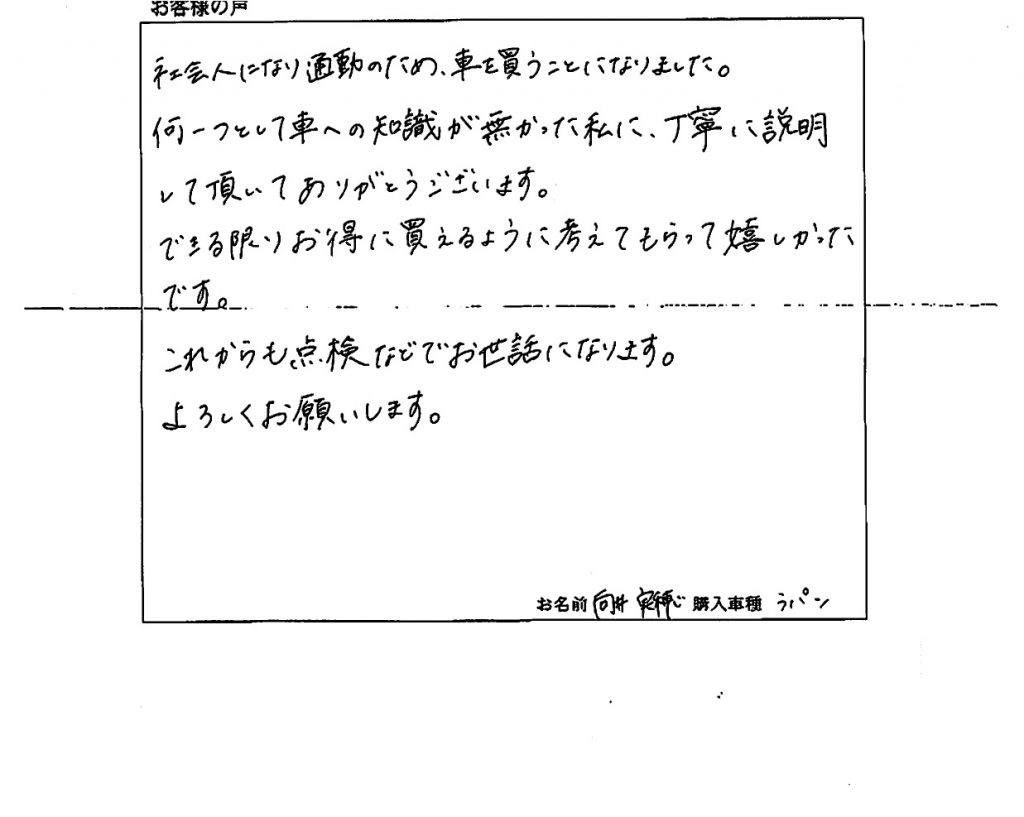 お客様の声
社会人になり通勤のため、車を買うことになりました。
何一つとして車への知識が無かった私に、丁寧に説明
して頂いてありがとうございます。
できる限りお得に買えるように考えてもらって嬉しかった
です。
これからも点検などでお世話になります。
よろしくお願いします。
お名前 向井 購入車種 ラパン